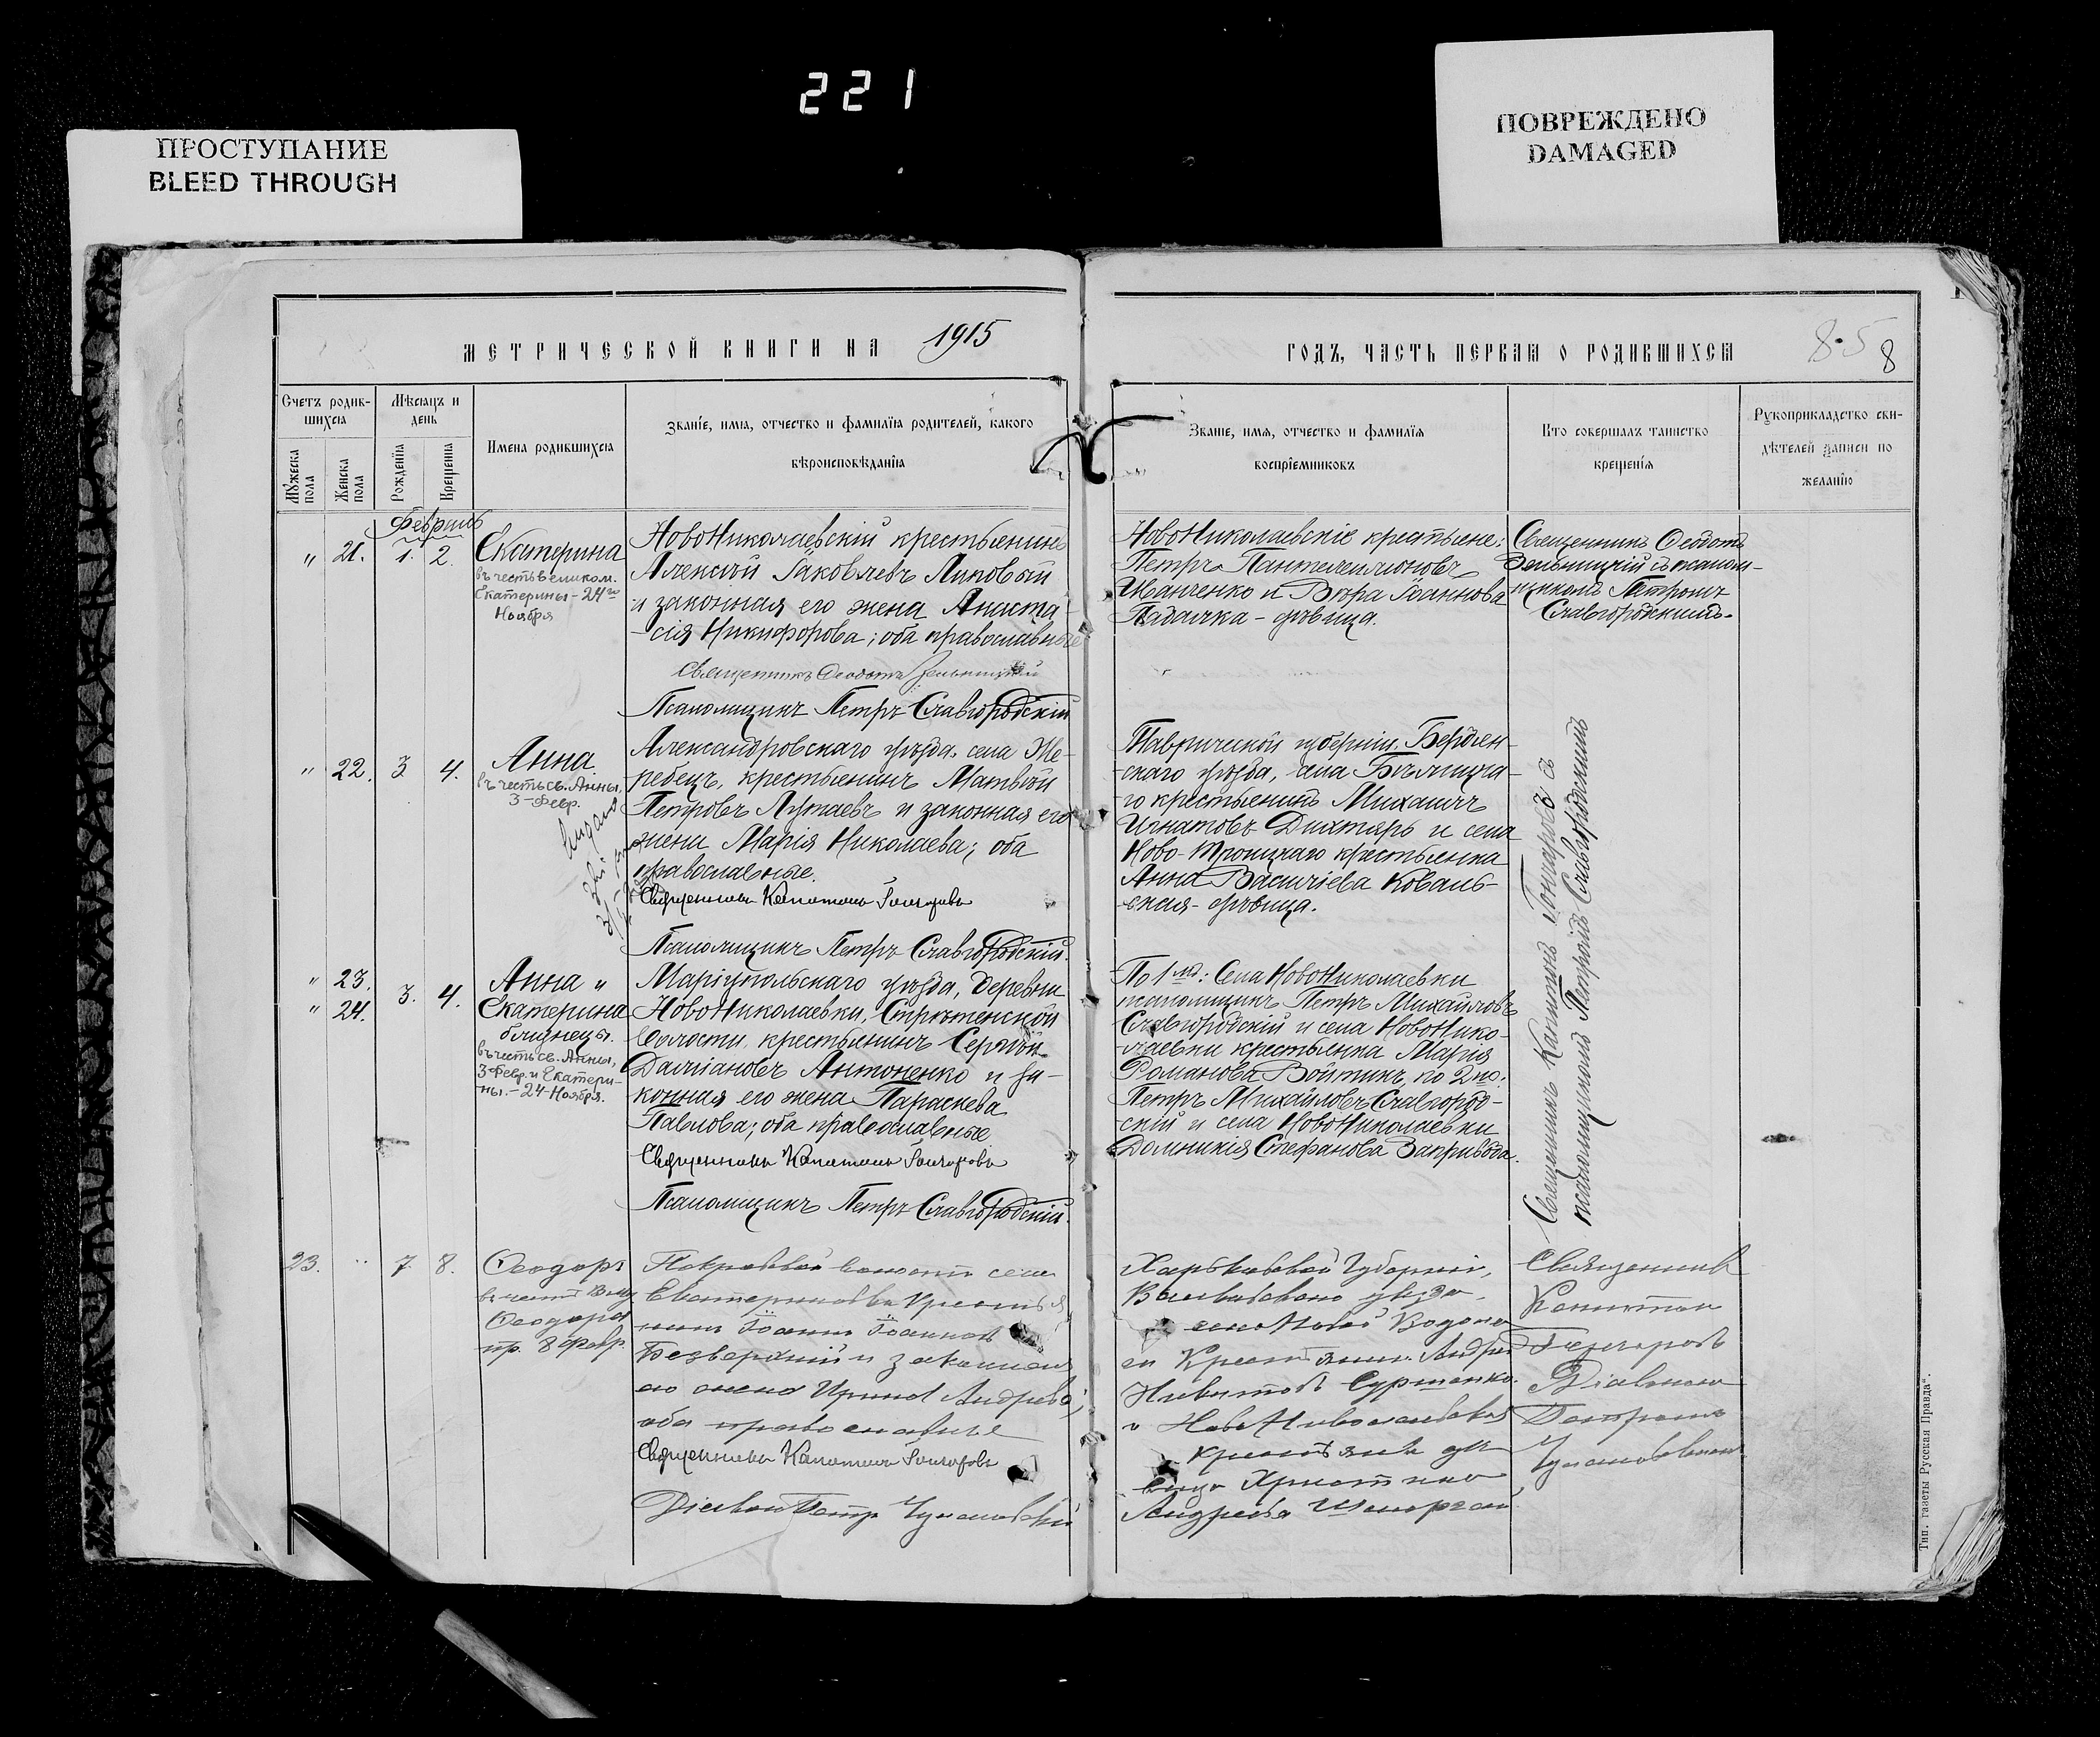 221
ПРОСТУПАНИЕ
BLEED THROUGH
ПОВРЕЖДЕНО
DAMAGED
МЕТРИЧЕСКОЙ КНИГИ НА 1915
ГОДЪ, ЧАСТЬ ПЕРВАЯ О РОДИВШИХСЯ
8
Счетъ родив-
шихся
Мужеска пола
Женска пола
Мѣсяцъ и
день
Рожденія
Крещенія
Имена родившихся
Званіе, имя, отчество и фамилія родителей, какого
вѣроисповѣданія
Званіе, имя, отчество и фамилія
воспріемниковъ
Кто совершалъ таинство
крещенія
Рукоприкладство сви-
дѣтелей записи по
желанію
Февраль
" 21. 1. 2.
Екатерина
въ честь великом.
Екатерины - 24го
Ноября
НовоНиколаевскій крестьянинъ
Алексѣй Іаковлевъ Липовый
и законная его жена Анаста-
-сія Никифорова; оба православные
Священникъ Ѳеодотъ Зельницкій
Псаломщикъ Петръ Славгородскій
НовоНиколаевскіе крестьяне:
Петръ Пантелеимоновъ
Иванченко и Вѣра Іоаннова
Падалка - дѣвица.
Священникъ Ѳеодотъ
Зельницкій съ псалом-
щикомъ Петромъ
Славгородскимъ.
" 22. 3. 4.
Анна
въ честь св. Анны,
3 - Февр.
Александровскаго уѣзда, села Же-
-ребецъ, крестьянинъ Матвѣй
Петровъ Лутаевъ и законная его
жена Марія Николаева; оба
православные.
Священникъ Капитонъ Гончаровъ
Псаломщикъ Петръ Славгородскій.
Таврической губерніи, Бердян-
-скаго уѣзда, села Бѣлицка-
-го крестьянинъ Михаилъ
Игнатовъ Дихтярь и села
Ново-Троицкаго крестьянка
Анна Василіева Коваль-
-ская - дѣвица.
Священникъ Капитонъ Гончаровъ съ
псаломщикомъ Петромъ Славгородскимъ
" 23. 3. 4.
" 24.
Анна и
Екатерина
близнецы.
въ честь св. Анны,
3 Февр. и Екатери-
-ны. - 24 Ноября.
Маріупольскаго уѣзда, деревни
НовоНиколаевки, Стрѣтенской
волости, крестьянинъ Сергѣй
Даміановъ Антоненко и за-
конная его жена Параскева
Павлова; оба православные
Священникъ Капитонъ Гончаровъ
Псаломщикъ Петръ Славгородскій.
По 1й: Села НовоНиколаевки
псаломщикъ Петръ Михайловъ
Славгородскій и села НовоНико-
-лаевки крестьянка Марія
Романова Войтикъ, по 2й:
Петръ Михайловъ Славгород-
-скій и села НовоНиколаевки
Домникія Стефанова Закривода.
23. " 7. 8.
Ѳеодоръ
въ честь
Ѳеодора
пр. 8 Февр.
Покровской волости села
Екатериновки крестья
нинъ Іоаннъ Іоанновъ
Безверхній и законная
его жена Ирина Андреева;
оба православные
Священникъ Капитонъ Гончаровъ
Діаконъ Петръ Чулановскій
Харьковской Губерніи,
Валковскаго уѣзда
села Новой Водола
ги Крестьянин Андрей
Никитовъ Сурженко
и НовоНиколаевская
крестьянка дѣ
вица Христина
Андреева
Священникъ
Капитонъ
Гончаровъ
Діакономъ
Петромъ
Чулановскимъ
Тип. газеты Русская Правда".